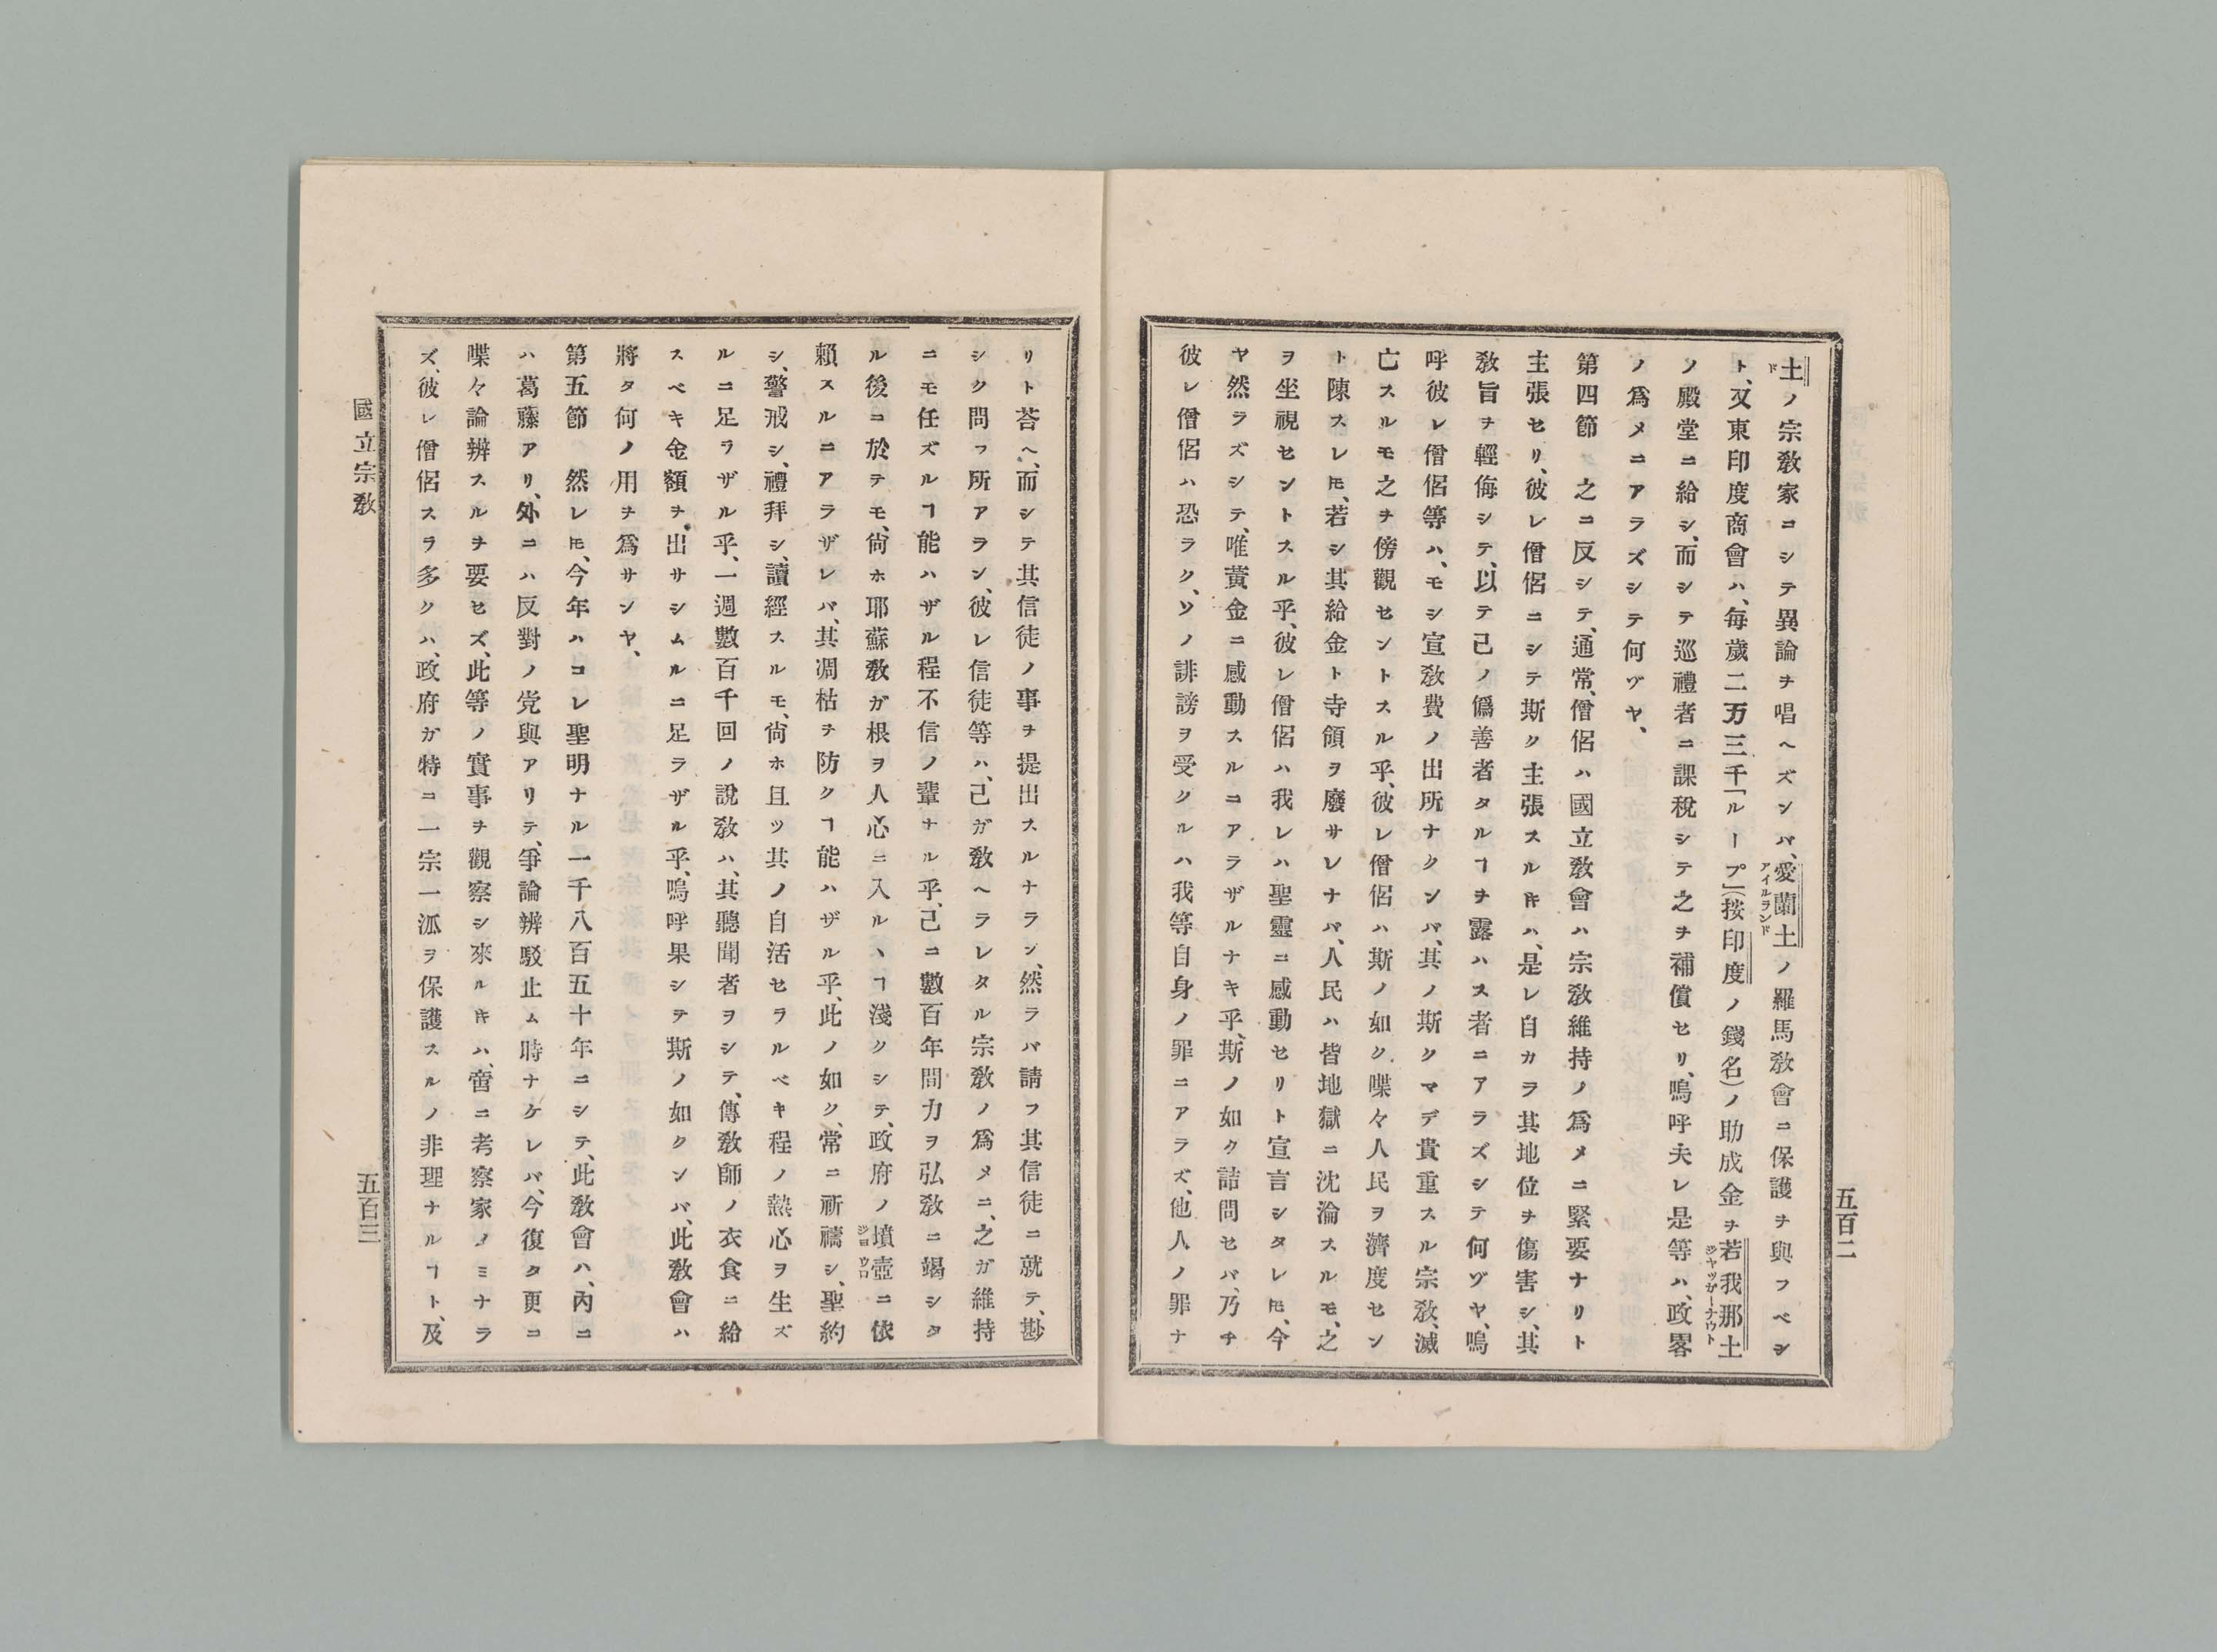 五百二
土ノ宗敎家ニシテ異論ヲ唱ヘズンバ、愛蘭土ノ羅馬敎會ニ保護ヲ與フベシ
ド
アイルランド
ト、又東印度商會ハ、每歲二万三千「ループ」(按印度ノ錢名)ノ助成金ヲ若我那土
ジヤツガーナウト
ノ殿堂ニ給シ、而シテ巡禮者ニ課稅シテ之ヲ補償セリ、嗚呼夫レ是等ハ、政畧
ノ爲メニアラズシテ何ゾヤ、
第四節 之ニ反シテ、通常、僧侶ハ國立敎會ハ宗敎維持ノ爲メニ緊要ナリト
主張セリ、彼レ僧侶ニシテ斯ク主張スルヰハ、是レ自カラ其地位ヲ傷害シ、其
敎旨ヲ輕侮シテ、以テ己ノ僞善者タルヿヲ露ハス者ニアラズシテ何ゾヤ、嗚
呼彼レ僧侶等ハ、モシ宣敎費ノ出所ナクンバ、其ノ斯クマデ貴重スル宗敎、滅
亡スルモ之ヲ傍觀セントスル乎、彼レ僧侶ハ斯ノ如ク喋々人民ヲ濟度セン
ト陳スレ𪜈、若シ其給金ト寺領ヲ廢サレナバ、人民ハ皆地獄ニ沈淪スルモ、之
ヲ坐視セントスル乎、彼レ僧侶ハ我レハ聖靈ニ感動セリト宣言シタレ𪜈、今
ヤ然ラズシテ、唯黃金ニ感動スルコアラザルナキ乎、斯ノ如ク詰問セバ、乃チ
彼レ僧侶ハ恐ラク、ソノ誹謗ヲ受クルハ我等自身ノ罪ニアラズ、他人ノ罪ナ
リト荅ヘ、而シテ其信徒ノ事ヲ提出スルナラン、然ラバ請フ其信徒ニ就テ、尠
シク問フ所アラン、彼レ信徒等ハ、己ガ敎ヘラレタル宗敎ノ爲メニ、之ガ維持
ニモ任ズルヿ能ハザル程不信ノ輩ナル乎、己ニ數百年間力ヲ弘敎ニ竭シタ
ル後ニ於テモ、尙ホ耶蘇敎ガ根ヲ人心ニ入ルヽヿ淺クシテ、政府ノ墳壺ニ依
ジヨウロ
賴スルニアラザレバ、其凋枯ヲ防クヿ能ハザル乎、此ノ如ク、常ニ祈禱シ、聖約
シ、警戒シ、禮拜シ、讀經スルモ、尙ホ且ツ其ノ自活セラルベキ程ノ熱心ヲ生ズ
ルニ足ラザル乎、一週數百千回ノ說敎ハ、其聽聞者ヲシテ、傳敎師ノ衣食ニ給
スベキ金額ヲ、出サシムルニ足ラザル乎、嗚呼果シテ斯ノ如クンバ、此敎會ハ
將タ何ノ用ヲ爲サンヤ、
第五節 然レ𪜈、今年ハコレ聖明ナル一千八百五十年ニシテ、此敎會ハ、內ニ
ハ葛藤アリ、外ニハ反對ノ党與アリテ、爭論辨駁止ム時ナケレバ、今復タ更ニ
喋々論辨スルヲ要セズ、此等ノ實事ヲ觀察シ來ルヰハ、啻ニ考察家ノミナラ
ズ、彼レ僧侶スラ多クハ、政府ガ特ニ一宗一派ヲ保護スルノ非理ナルヿト、及
國立宗敎
五百三